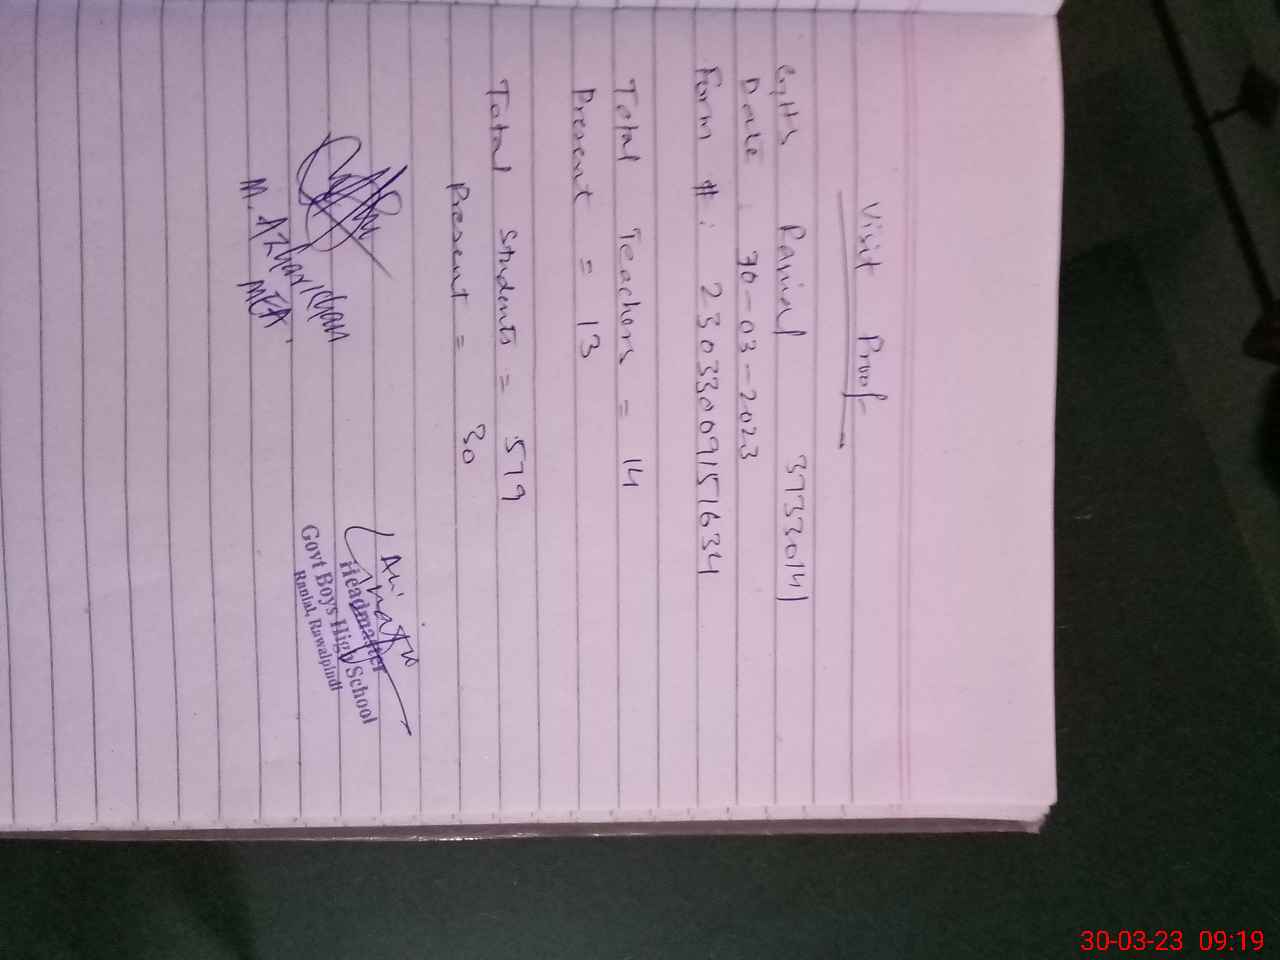 Visit Proof
GHS Panial 37330141
Date: 30-03-2023
Form #: 23033009151634
Total Teachers = 14
Present = 13
Total Students = 579
Present = 30
M. Azhar Khan
MEA.
Headmaster
Govt Boys High School
Ranial, Rawalpindi
30-03-23 09:19